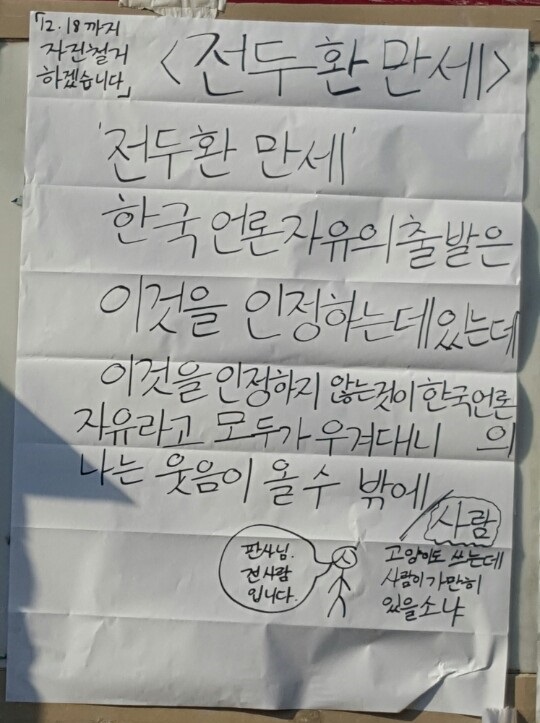 「12.18까지
자진철거
하겠습니다」
<전두환 만세>
'전두환 만세'
한국언론자유의출발은
이것을 인정하는데있는데
이것을인정하지 않는것이 한국언론
자유라고 모두가 우겨대니 의
나는 웃음이 올 수 밖에
사람
고양이도 쓰는데
사람이 가만히
있을소냐
판사님.
전 사람
입니다.